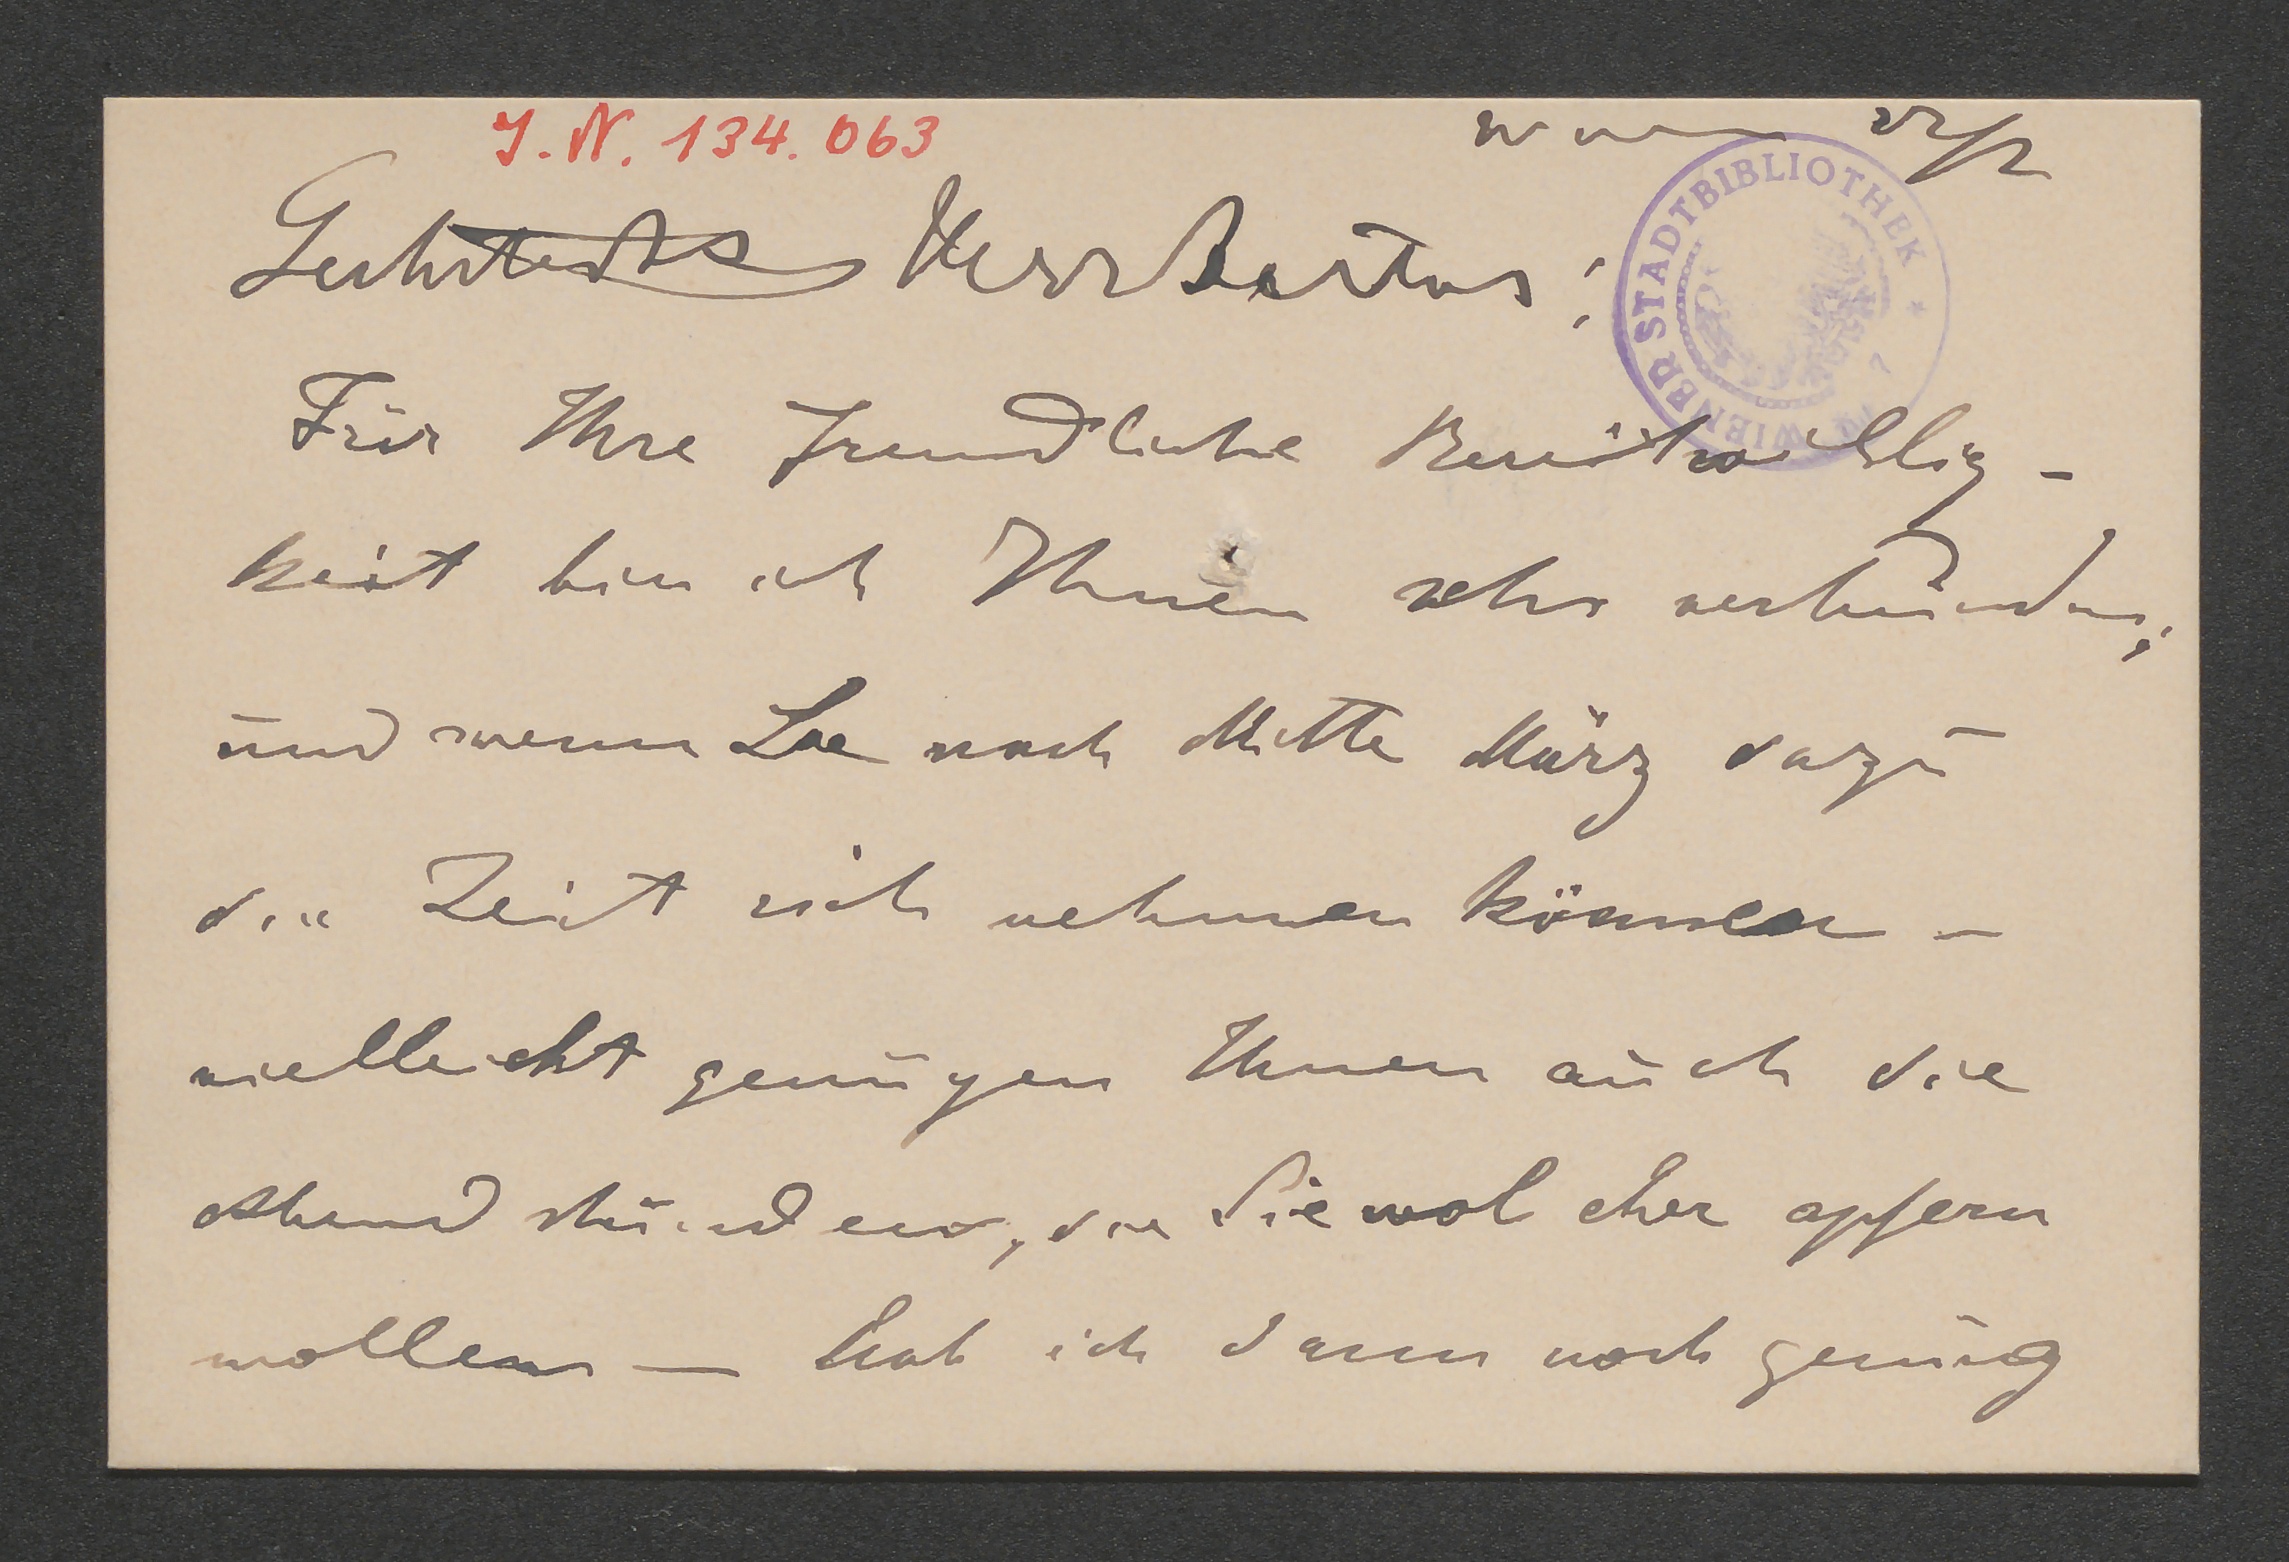 J.N. 134.063
Geehrtester Herr Doctor:
WIENER STADTBIBLIOTHEK *
Für Ihre freundliche Bereitwillig-
keit bin ich Ihnen sehr verbunden;
und wenn Sie nach Mitte März dazu
die Zeit sich nehmen können –
vielleicht genügen Ihnen auch die
Abendstunden, die Sie wol eher opfern
wollen — hab ich dann noch genug